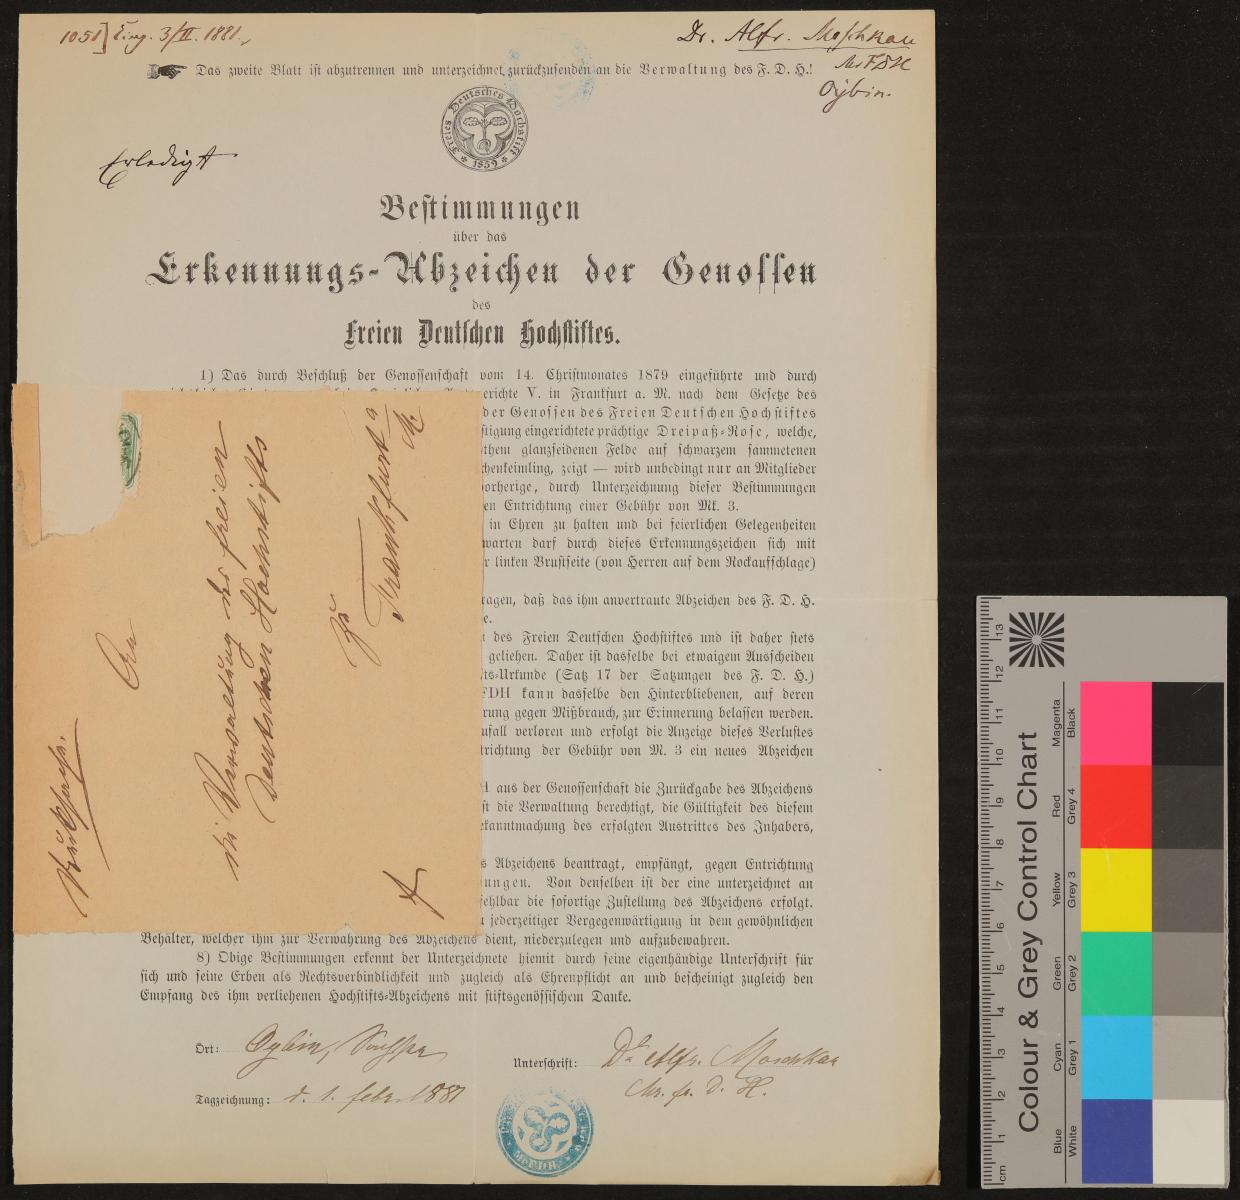 1051] Eing. 3/II. 1881.
Dr. Alfr. Moschkau
MrFDH
Oybin.
Das zweite Blatt ist abzutrennen und unterzeichnet zurückzusenden an die Verwaltung des F. D. H.!
Freies Deutsches Hochstift * 1859 *
Erledigt
Bestimmungen
über das
Erkennungs-Abzeichen der Genossen
des
Freien Deutschen Hochstiftes.
1) Das durch Beschluß der Genossenschaft vom 14. Christmonates 1879 eingeführte und durch
erichte V. in Frankfurt a. M. nach dem Gesetze des
der Genossen des Freien Deutschen Hochstiftes
stigung eingerichtete prächtige Dreipaß-Rose, welche,
them glanzseidenen Felde auf schwarzem sammetenen
chenkeimling, zeigt — wird unbedingt nur an Mitglieder
vorherige, durch Unterzeichnung dieser Bestimmungen
en Entrichtung einer Gebühr von Mk. 3.
in Ehren zu halten und bei feierlichen Gelegenheiten
warten darf durch dieses Erkennungszeichen sich mit
r linken Brustseite (von Herren auf dem Rockaufschlage)
ragen, daß das ihm anvertraute Abzeichen des F. D. H.
e.
des Freien Deutschen Hochstiftes und ist daher stets
geliehen. Daher ist dasselbe bei etwaigem Ausscheiden
ts-Urkunde (Satz 17 der Satzungen des F. D. H.)
FDH kann dasselbe den Hinterbliebenen, auf deren
rung gegen Mißbrauch, zur Erinnerung belassen werden.
ufall verloren und erfolgt die Anzeige dieses Verlustes
trichtung der Gebühr von M. 3 ein neues Abzeichen
H aus der Genossenschaft die Zurückgabe des Abzeichens
st die Verwaltung berechtigt, die Gültigkeit des diesem
ekanntmachung des erfolgten Austrittes des Inhabers,
s Abzeichens beantragt, empfängt, gegen Entrichtung
ungen. Von denselben ist der eine unterzeichnet an
fehlbar die sofortige Zustellung des Abzeichens erfolgt.
u jederzeitiger Vergegenwärtigung in dem gewöhnlichen
Behälter, welcher ihm zur Verwahrung des Abzeichens dient, niederzulegen und aufzubewahren.
8) Obige Bestimmungen erkennt der Unterzeichnete hiemit durch seine eigenhändige Unterschrift für
sich und seine Erben als Rechtsverbindlichkeit und zugleich als Ehrenpflicht an und bescheinigt zugleich den
Empfang des ihm verliehenen Hochstifts-Abzeichens mit stiftsgenössischem Danke.
Ort: Oybin,
Unterschrift: Dr. Alfr. Moschkau
Mr. fr. D. H.
Tagzeichnung: d. 1. febr. 1881
MrFDH
An
die Verwaltung des freien
Deutschen Hochstifts
zu
Frankfurt a
M.
Colour & Grey Control Chart
Blue Cyan Green Yellow Red Magenta
White Grey 1 Grey 2 Grey 3 Grey 4 Black
cm 1 2 3 4 5 6 7 8 9 10 11 12 13